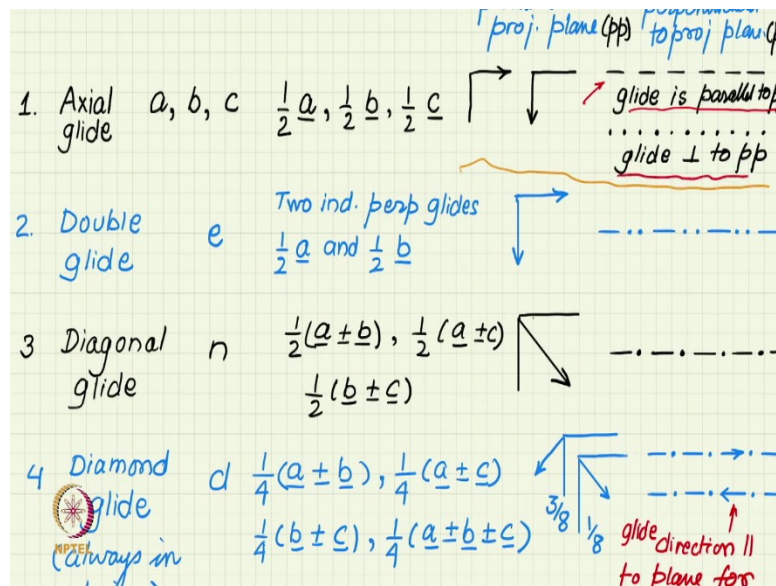 proj. plane (pp) to proj plane
1. Axial glide a, b, c ½ a, ½ b, ½ c
glide is parallel to
glide ⊥ to pp
2. Double glide e Two ind. perp glides
½ a and ½ b
3 Diagonal glide n ½(a ± b), ½(a ± c)
½(b ± c)
4 Diamond glide d ¼(a ± b), ¼(a ± c)
¼(b ± c), ¼(a ± b ± c)
3/8 1/8
(always in
glide direction ||
to plane for
NPTEL